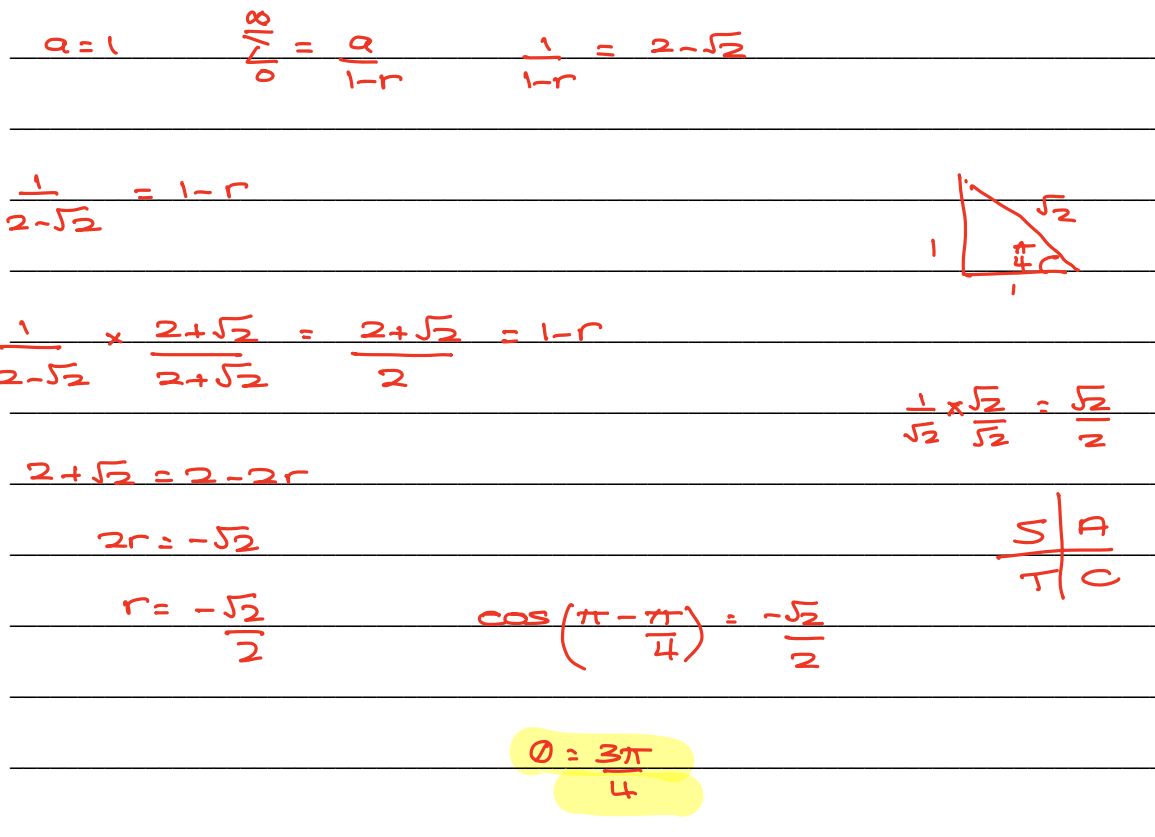 a = 1 ∞Σ0 = a/(1-r) 1/(1-r) = 2-√2
1/(2-√2) = 1-r
√2
1 π/4
1
1/(2-√2) × (2+√2)/(2+√2) = (2+√2)/2 = 1-r
1/√2 × √2/√2 = √2/2
2+√2 = 2-2r
S A
2r = -√2
T C
r = -√2/2 cos(π - π/4) = -√2/2
θ = 3π/4